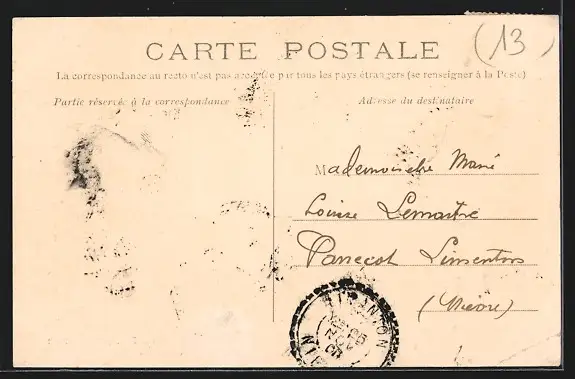 (13)
CARTE POSTALE
La correspondance au recto n'est pas acceptée par tous les pays étrangers (se renseigner à la Poste)
Partie réservée à la correspondance
Adresse du destinataire
Mademoiselle Marie
Louise Lemaitre
Panecot Limanton
(Nièvre)